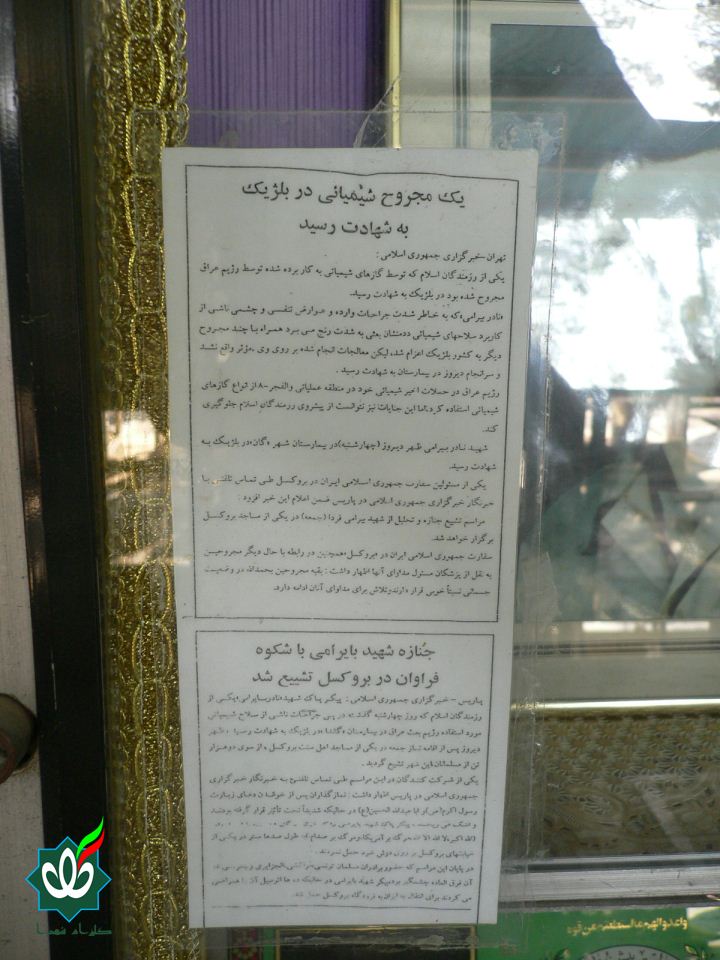 یک مجروح شیمیائی در بلژیک
به شهادت رسید
تهران-خبرگزاری جمهوری اسلامی :
یکی از رزمندگان اسلام که توسط گازهای شیمیائی به کار برده شده توسط رژیم عراق
مجروح شده بود در بلژیک به شهادت رسید.
«نادر بیرامی» که به خاطر شدت جراحات وارده و عوارض تنفسی و چشمی ناشی از
کاربرد سلاحهای شیمیائی ددمنشان بعثی به شدت رنج می برد همراه با چند مجروح
دیگر به کشور بلژیک اعزام شد، لیکن معالجات انجام شده بر روی وی مؤثر واقع نشد
و سرانجام دیروز در بیمارستان به شهادت رسید .
رژیم عراق در حملات اخیر شیمیائی خود در منطقه عملیاتی والفجر-۸ از انواع گازهای
شیمیائی استفاده کرد، اما این جنایات نیز نتوانست از پیشروی رزمندگان اسلام جلوگیری
کند.
شهید نادر بیرامی ظهر دیروز (چهارشنبه) در بیمارستان شهر «گان» در بلژیک به
شهادت رسید.
یکی از مسئولین سفارت جمهوری اسلامی ایران در بروکسل طی تماس تلفنی با
خبرنگار خبرگزاری جمهوری اسلامی در پاریس ضمن اعلام این خبر افزود :
مراسم تشیع جنازه و تجلیل از شهید بیرامی فردا (جمعه) در یکی از مساجد بروکسل
برگزار خواهد شد.
سفارت جمهوری اسلامی ایران در «بروکسل» همچنین در رابطه با حال دیگر مجروحین
به نقل از پزشکان مسئول مداوای آنها اظهار داشت : بقیه مجروحین بحمدالله در وضعیت
جسمانی نسبتاً خوبی قرار دارند و تلاش برای مداوای آنان ادامه دارد.
جنازه شهید بایرامی با شکوه
فراوان در بروکسل تشییع شد
پاریس - خبرگزاری جمهوری اسلامی : پیکر پاک شهید «نادر بایرامی» یکی از
رزمندگان اسلام که روز چهارشنبه گذشته در پی جراحات ناشی از سلاح شیمیائی
مورد استفاده رژیم بعث عراق در بیمارستان «گاند» در بلژیک به شهادت رسید ظهر
دیروز پس از اقامه نماز جمعه در یکی از مساجد اهل سنت بروکسل ، از سوی دو هزار
تن از مسلمانان این شهر تشیع گردید .
یکی از شرکت کنندگان در این مراسم طی تماس تلفنی به خبرنگار خبرگزاری
جمهوری اسلامی در پاریس اظهار داشت : نمازگذاران پس از خواندن دعای زیارت
رسول اکرم (ص) و ابا عبدالله الحسین (ع) در حالیکه شدیداً تحت تأثیر قرار گرفته بودند
پیکر پاک شهید بایرامی
الله اکبر، لا اله الا الله، مرگ بر آمریکا، و مرگ بر صدام طول صدها متر در یکی از
خیابانهای بروکسل بر روی دوش خود حمل نمودند.
در پایان این مراسم که حضور برادران مسلمان تونسی، مراکشی، الجزایری و
آن فوق العاده چشمگیر بود پیکر شهید بایرامی در حالیکه ده ها اتومبیل آن را همراهی
می کردند برای انتقال به ایران به فرودگاه بروکسل حمل شد.
واعدوا لهم ما استطعتم من قوه